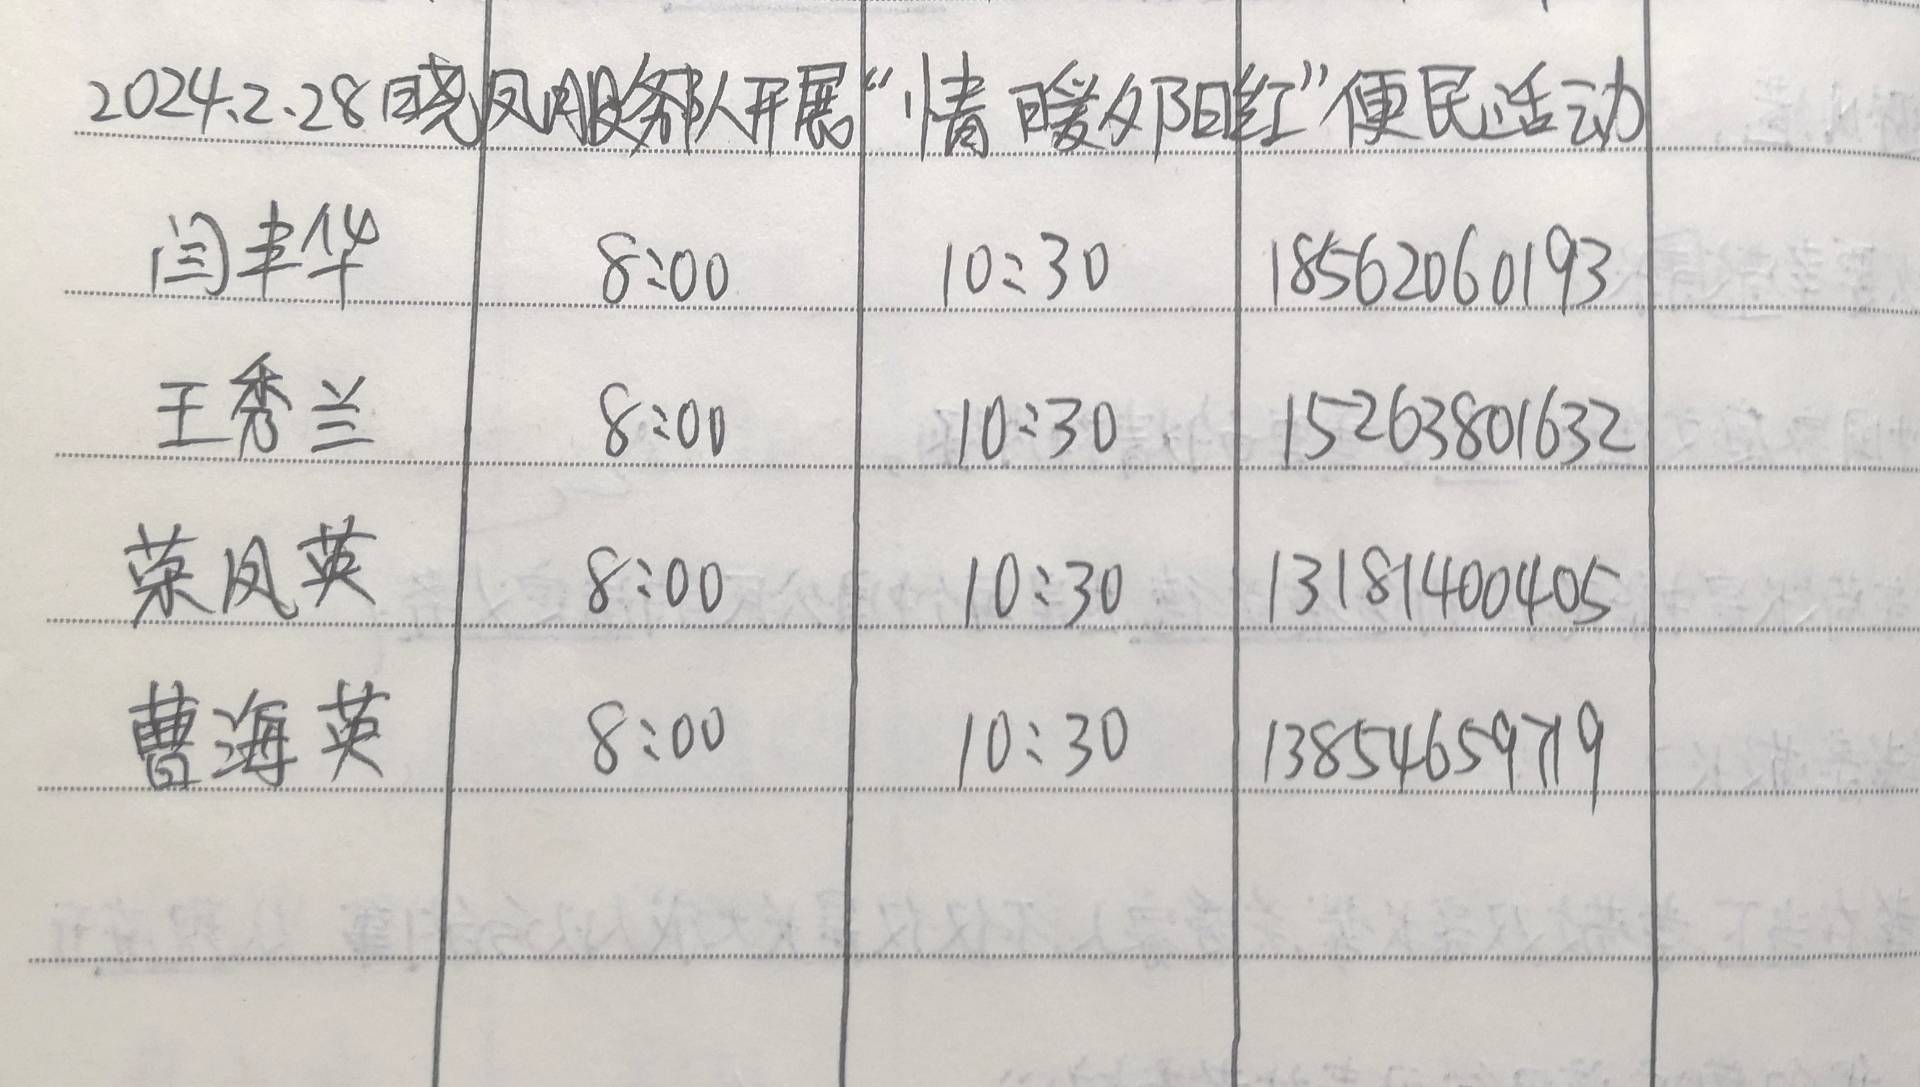 2024.2.28晓凤服务队开展“情暖夕阳红”便民活动
闫丰华 8:00 10:30 18562060193
王秀兰 8:00 10:30 15263801632
荣凤英 8:00 10:30 13181400405
曹海英 8:00 10:30 13854659719